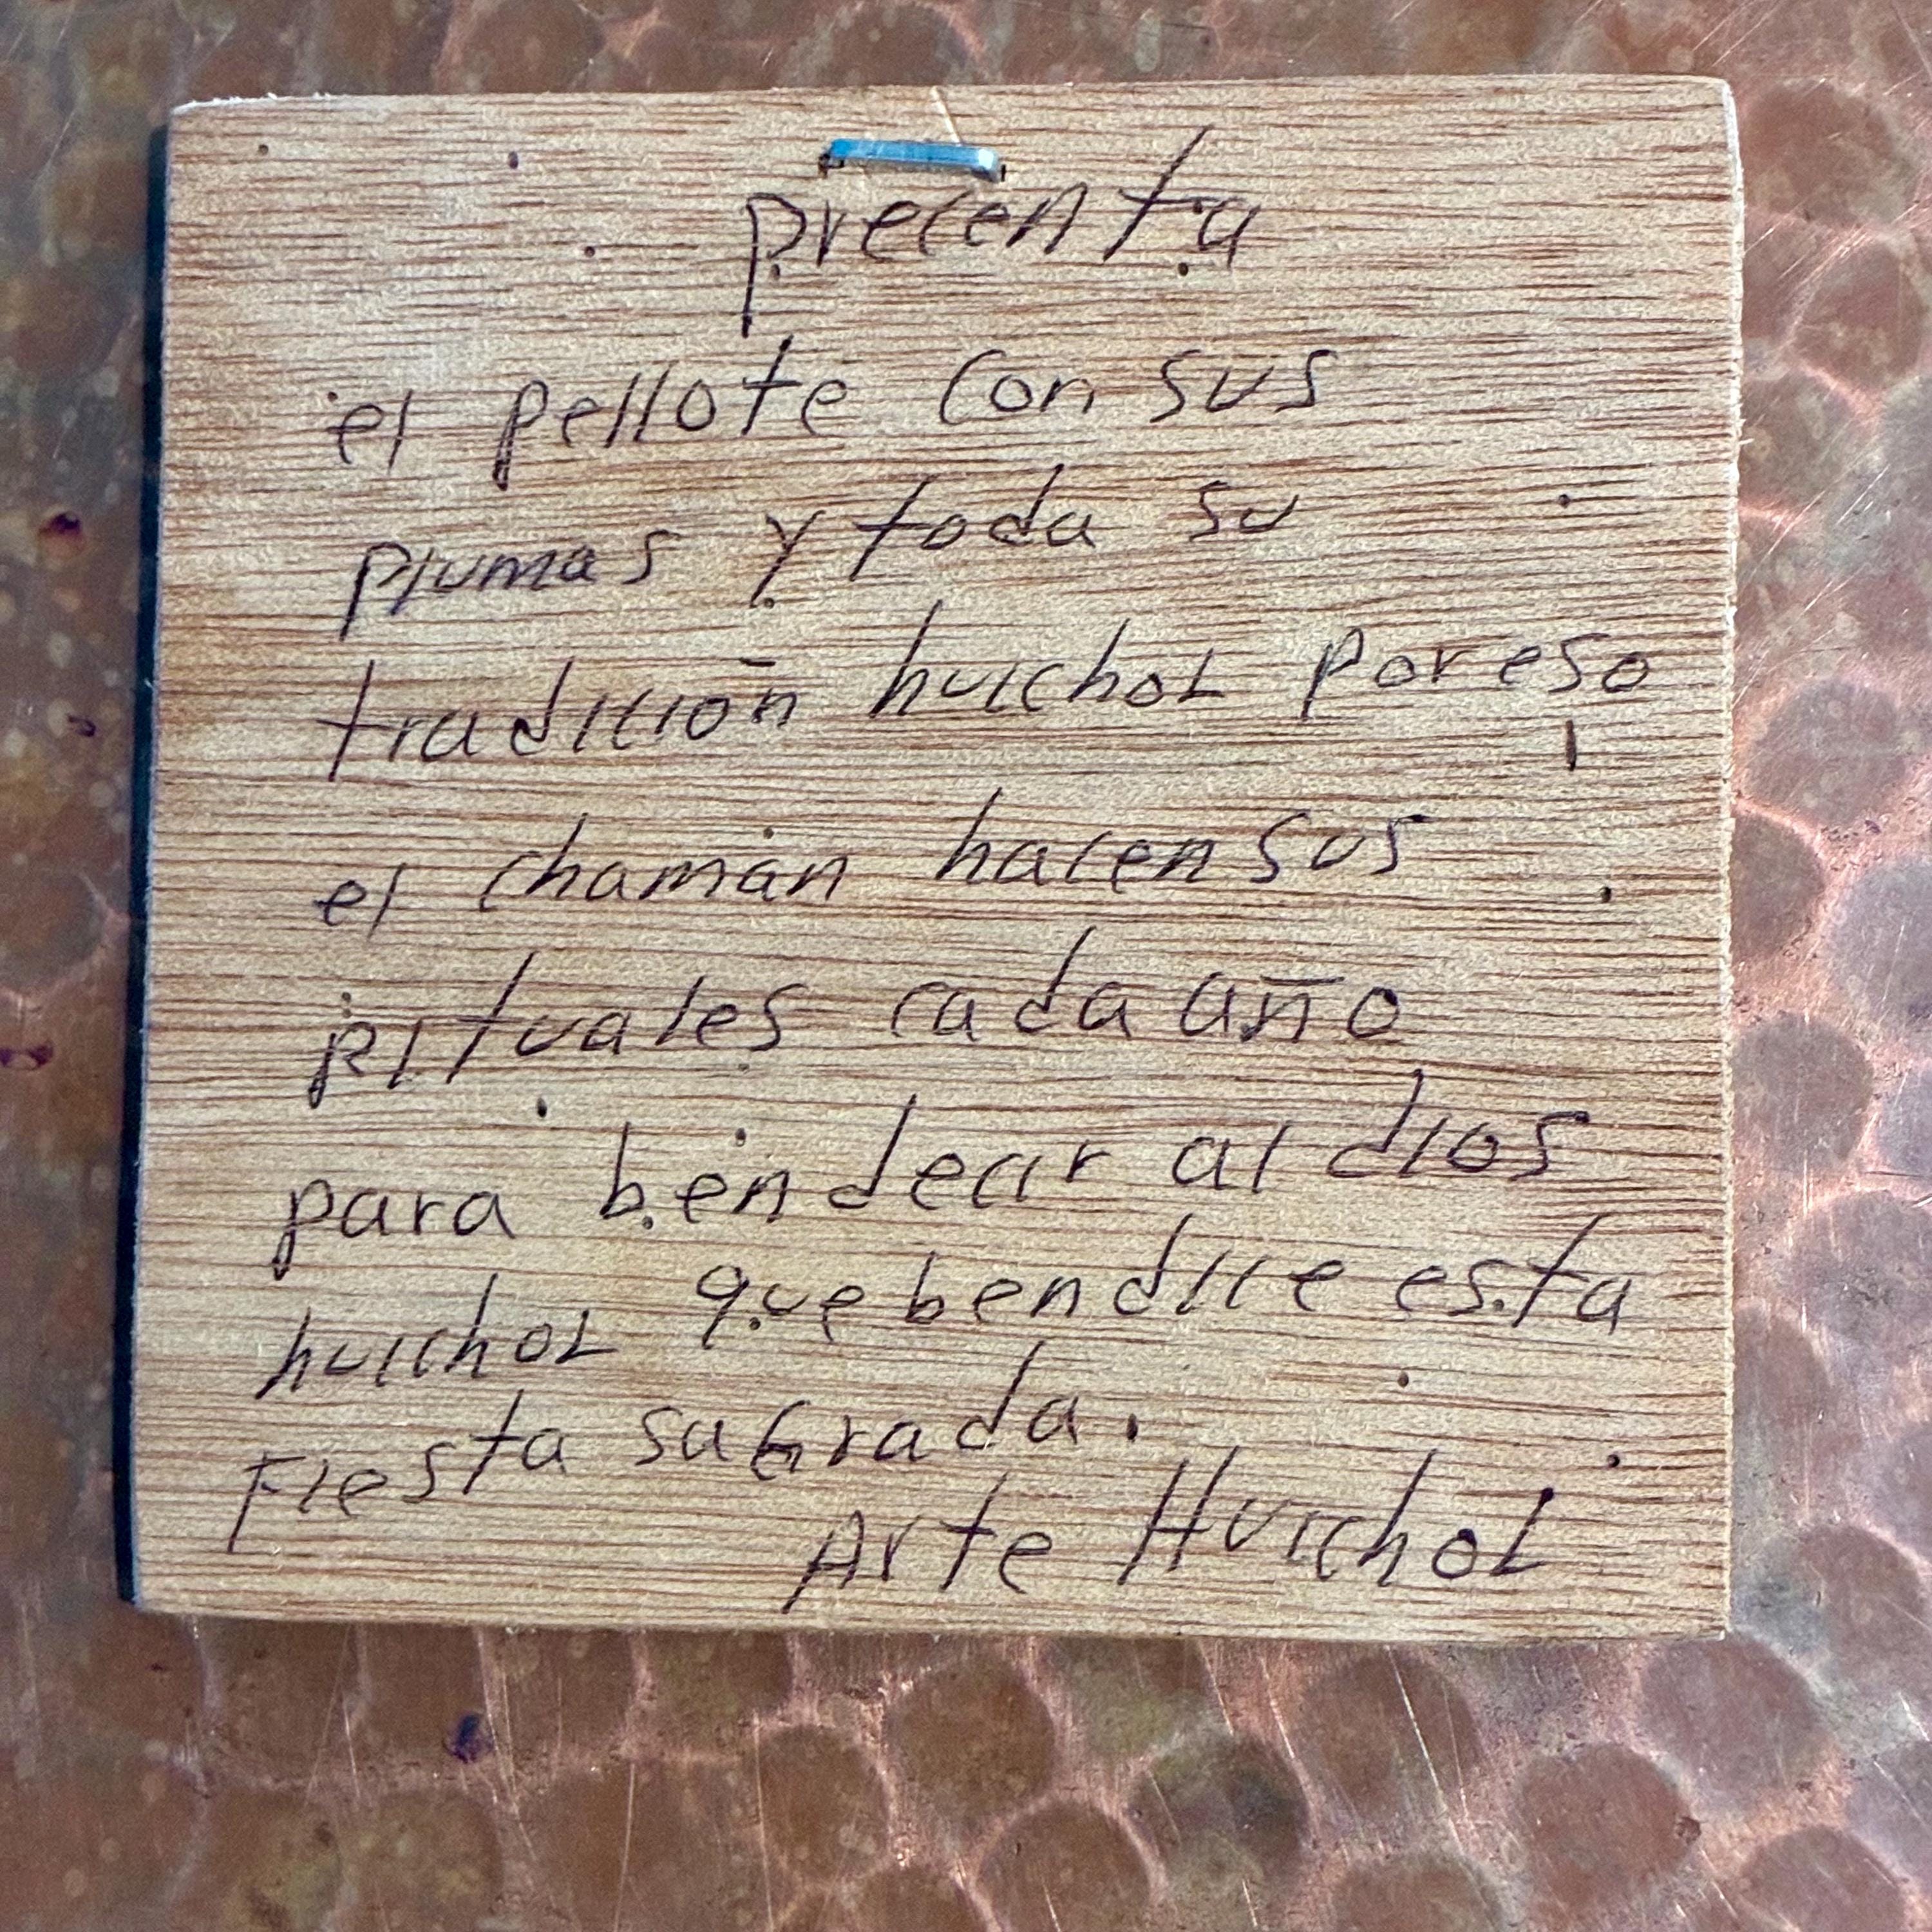 precenta
el pellote con sus
plumas y toda su
tradición huichol por eso
el chamán hacen sus
rituales cada año
para bendecir al dios
huichol que bendice esta
Fiesta saGrada.
Arte Huichol